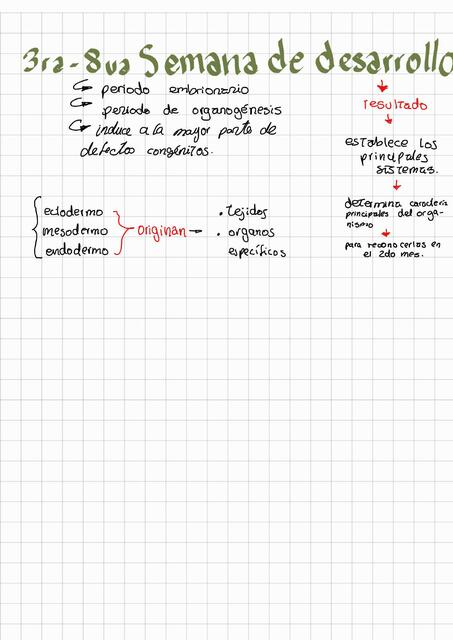 3ra - 8va Semana de desarrollo
periodo embrionario
periodo de organogénesis
induce a la mayor parte de
defectos congénitos.
resultado
establece los
principales
sistemas.
determina caracterís
principales del orga-
nismo
para reconocerlos en
el 2do mes.
ectodermo
mesodermo
endodermo
originan
. tejidos
. organos
específicos